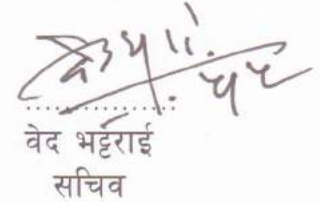 ....................
वेद भर्ट्टराई
सचिव